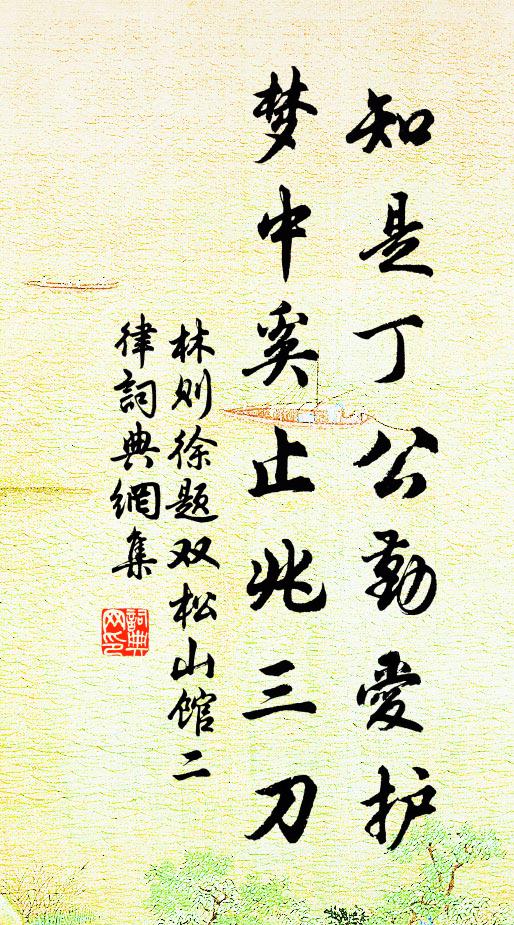 知是丁公勤愛护
梦中奚止兆三刀
林则徐题双松山馆二
律詞典網集
詞典
网印